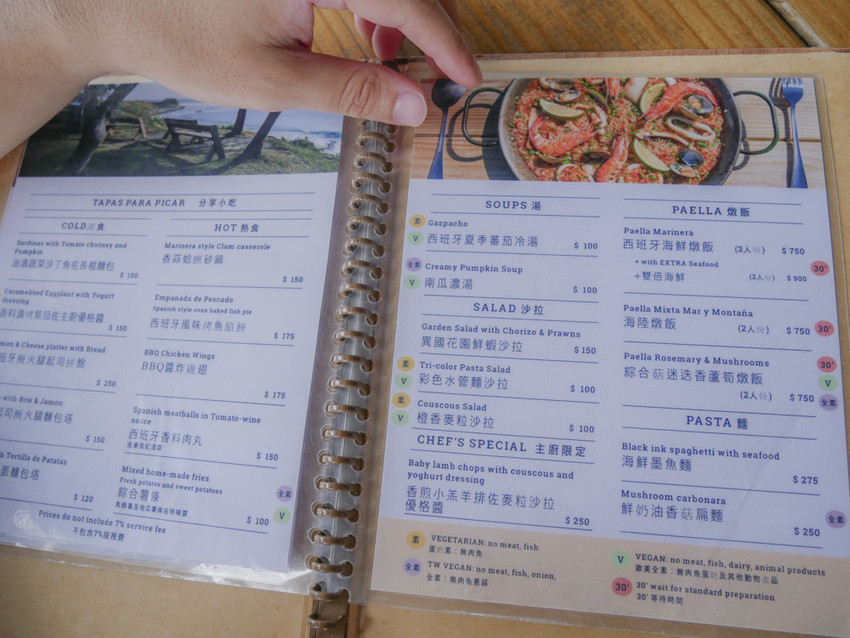 TAPAS PARA PICAR 分享小吃
COLD 涼食
Sardines with Tomato chutney and
Pumpkin
油漬蔬菜沙丁魚佐長棍麵包
$ 150
Caramelised Eggplant with Yogurt
dressing
香料漬烤紫茄佐主廚優格醬
$ 150
& Cheese platter with Bread
火腿起司拼盤
$ 250
with Brie & Jamon
起司火腿麵包塔
$ 150
Tortilla de Patatas
蛋麵包塔
$ 120
HOT 熱食
Marinera style Clam casserole
香蒜蛤蜊砂鍋
$ 150
Empanada de Pescado
Spanish style oven baked fish pie
西班牙風味烤魚餡餅
$ 175
BBQ Chicken Wings
BBQ醬炸雞翅
$ 175
Spanish meatballs in Tomato-wine
sauce
西班牙香料肉丸
$ 150
Mixed home-made fries
Fresh potatoes and sweet potatoes
綜合薯條
$ 100
全素
V
Prices do not include 7% service fee
不包含7%服務費
SOUPS 湯
素
Gazpacho
V
西班牙夏季蕃茄冷湯
$ 100
全素
Creamy Pumpkin Soup
V
南瓜濃湯
$ 100
SALAD 沙拉
Garden Salad with Chorizo & Prawns
異國花園鮮蝦沙拉
$ 150
素
Tri-color Pasta Salad
V
彩色水管麵沙拉
$ 100
素
Couscous Salad
V
橙香麥粒沙拉
$ 100
CHEF'S SPECIAL 主廚限定
Baby lamb chops with couscous and
yoghurt dressing
香煎小羔羊排佐麥粒沙拉
優格醬
$ 250
PAELLA 燉飯
Paella Marinera
西班牙海鮮燉飯 (2人份) $ 750
+ with EXTRA Seafood
+雙倍海鮮 (2人份) $ 900
30'
Paella Mixta Mar y Montaña
海陸燉飯 (2人份) $ 750
30'
Paella Rosemary & Mushrooms
綜合菇迷迭香蘆筍燉飯
(2人份) $ 750
30'
V
全素
PASTA 麵
Black ink spaghetti with seafood
海鮮墨魚麵
$ 275
Mushroom carbonara
鮮奶油香菇扁麵
$ 250
全素
素 VEGETARIAN: no meat, fish
蛋奶素：無肉魚
全素 TW VEGAN: no meat, fish, onion,
全素：無肉魚蔥蒜
V VEGAN: no meat, fish, dairy, animal products
歐美全素：無肉魚蛋奶及其他動物產品
30' 30' wait for standard preparation
30' 等待時間